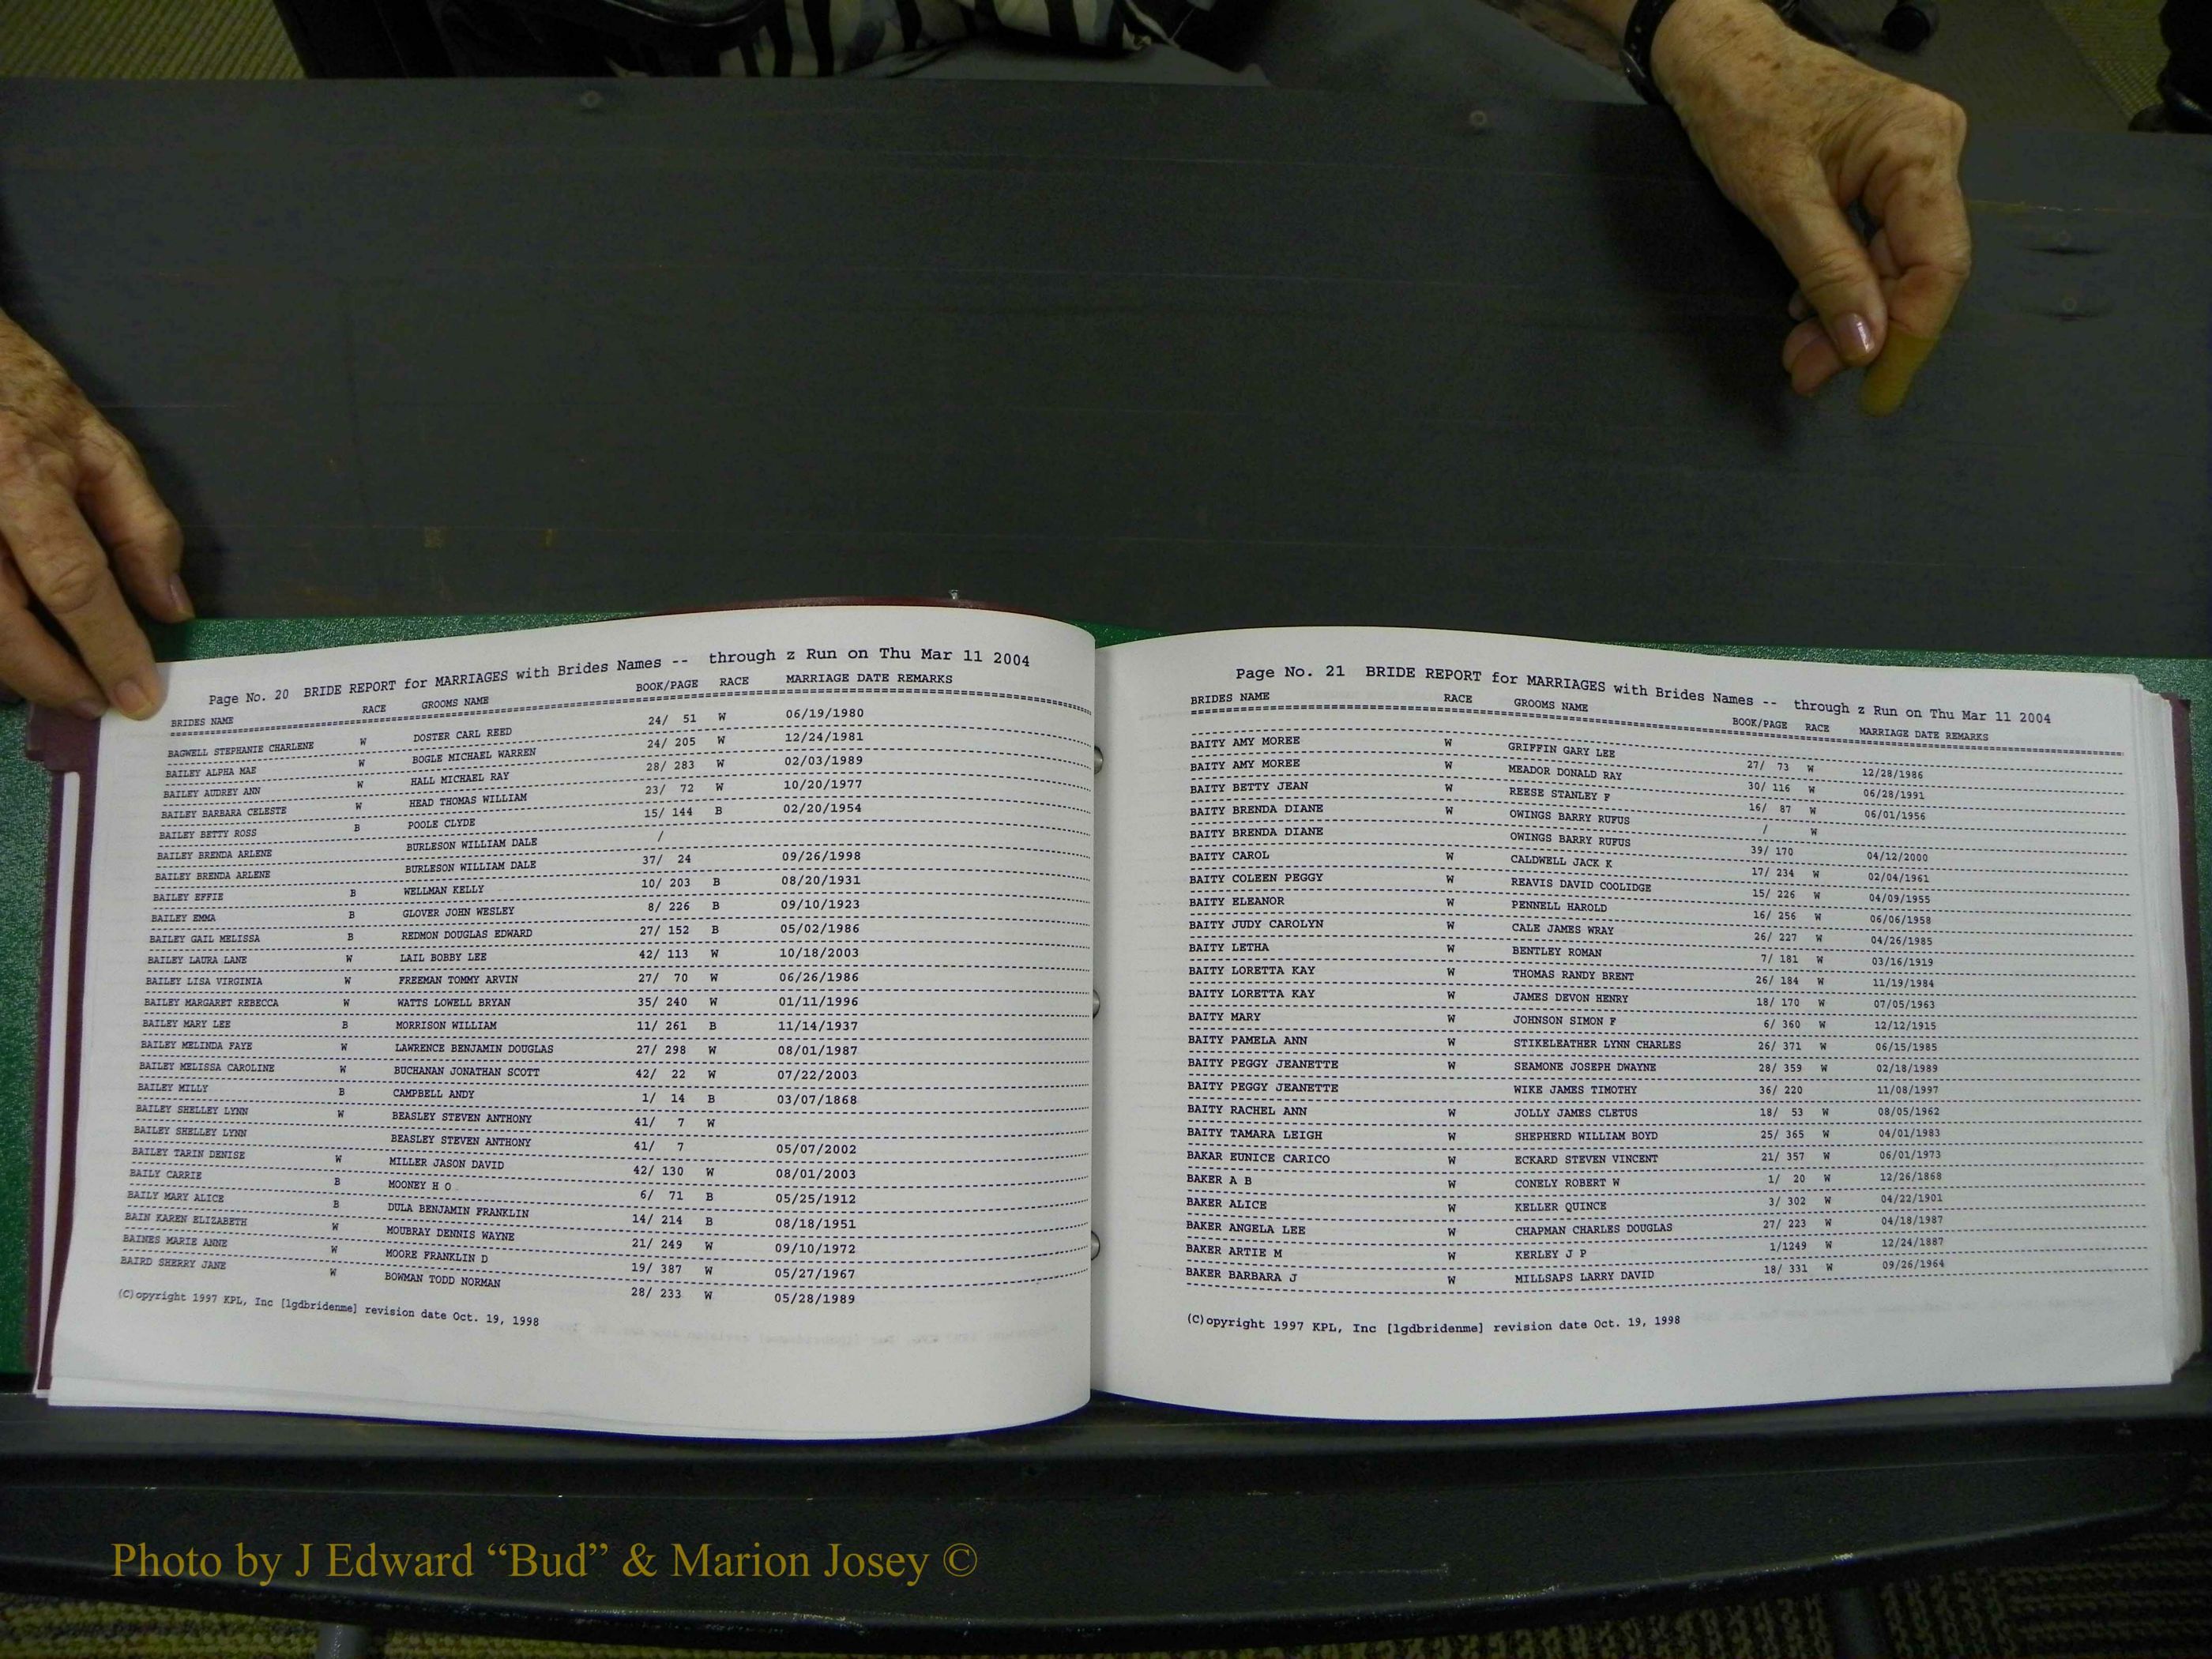 Page No. 20 BRIDE REPORT for MARRIAGES with Brides Names -- through z Run on Thu Mar 11 2004
BRIDES NAME RACE GROOMS NAME BOOK/PAGE RACE MARRIAGE DATE REMARKS
BAGWELL STEPHANIE CHARLENE W DOSTER CARL REED 24/ 51 W 06/19/1980
BAILEY ALPHA MAE W BOGLE MICHAEL WARREN 24/ 205 W 12/24/1981
BAILEY AUDREY ANN W HALL MICHAEL RAY 28/ 283 W 02/03/1989
BAILEY BARBARA CELESTE W HEAD THOMAS WILLIAM 23/ 72 W 10/20/1977
BAILEY BETTY ROSS B POOLE CLYDE 15/ 144 B 02/20/1954
BAILEY BRENDA ARLENE BURLESON WILLIAM DALE /
BAILEY BRENDA ARLENE BURLESON WILLIAM DALE 37/ 24 09/26/1998
BAILEY EFFIE B WELLMAN KELLY 10/ 203 B 08/20/1931
BAILEY EMMA B GLOVER JOHN WESLEY 8/ 226 B 09/10/1923
BAILEY GAIL MELISSA B REDMON DOUGLAS EDWARD 27/ 152 B 05/02/1986
BAILEY LAURA LANE W LAIL BOBBY LEE 42/ 113 W 10/18/2003
BAILEY LISA VIRGINIA W FREEMAN TOMMY ARVIN 27/ 70 W 06/26/1986
BAILEY MARGARET REBECCA W WATTS LOWELL BRYAN 35/ 240 W 01/11/1996
BAILEY MARY LEE B MORRISON WILLIAM 11/ 261 B 11/14/1937
BAILEY MELINDA FAYE W LAWRENCE BENJAMIN DOUGLAS 27/ 298 W 08/01/1987
BAILEY MELISSA CAROLINE W BUCHANAN JONATHAN SCOTT 42/ 22 W 07/22/2003
BAILEY MILLY B CAMPBELL ANDY 1/ 14 B 03/07/1868
BAILEY SHELLEY LYNN W BEASLEY STEVEN ANTHONY 41/ 7 W
BAILEY SHELLEY LYNN BEASLEY STEVEN ANTHONY 41/ 7 05/07/2002
BAILEY TARIN DENISE W MILLER JASON DAVID 42/ 130 W 08/01/2003
BAILY CARRIE B MOONEY H O 6/ 71 B 05/25/1912
BAILY MARY ALICE B DULA BENJAMIN FRANKLIN 14/ 214 B 08/18/1951
BAIN KAREN ELIZABETH W MOUBRAY DENNIS WAYNE 21/ 249 W 09/10/1972
BAINES MARIE ANNE W MOORE FRANKLIN D 19/ 387 W 05/27/1967
BAIRD SHERRY JANE W BOWMAN TODD NORMAN 28/ 233 W 05/28/1989
(C)opyright 1997 KPL, Inc [lgdbridenme] revision date Oct. 19, 1998
Page No. 21 BRIDE REPORT for MARRIAGES with Brides Names -- through z Run on Thu Mar 11 2004
BRIDES NAME RACE GROOMS NAME BOOK/PAGE RACE MARRIAGE DATE REMARKS
BAITY AMY MOREE W GRIFFIN GARY LEE 27/ 73 W 12/28/1986
BAITY AMY MOREE W MEADOR DONALD RAY 30/ 116 W 06/28/1991
BAITY BETTY JEAN W REESE STANLEY F 16/ 87 W 06/01/1956
BAITY BRENDA DIANE W OWINGS BARRY RUFUS / W
BAITY BRENDA DIANE OWINGS BARRY RUFUS 39/ 170 04/12/2000
BAITY CAROL W CALDWELL JACK K 17/ 234 W 02/04/1961
BAITY COLEEN PEGGY W REAVIS DAVID COOLIDGE 15/ 226 W 04/09/1955
BAITY ELEANOR W PENNELL HAROLD 16/ 256 W 06/06/1958
BAITY JUDY CAROLYN W CALE JAMES WRAY 26/ 227 W 04/26/1985
BAITY LETHA W BENTLEY ROMAN 7/ 181 W 03/16/1919
BAITY LORETTA KAY W THOMAS RANDY BRENT 26/ 184 W 11/19/1984
BAITY LORETTA KAY W JAMES DEVON HENRY 18/ 170 W 07/05/1963
BAITY MARY W JOHNSON SIMON F 6/ 360 W 12/12/1915
BAITY PAMELA ANN W STIKELEATHER LYNN CHARLES 26/ 371 W 06/15/1985
BAITY PEGGY JEANETTE W SEAMONE JOSEPH DWAYNE 28/ 359 W 02/18/1989
BAITY PEGGY JEANETTE WIKE JAMES TIMOTHY 36/ 220 11/08/1997
BAITY RACHEL ANN W JOLLY JAMES CLETUS 18/ 53 W 08/05/1962
BAITY TAMARA LEIGH W SHEPHERD WILLIAM BOYD 25/ 365 W 04/01/1983
BAKAR EUNICE CARICO W ECKARD STEVEN VINCENT 21/ 357 W 06/01/1973
BAKER A B W CONELY ROBERT W 1/ 20 W 12/26/1868
BAKER ALICE W KELLER QUINCE 3/ 302 W 04/22/1901
BAKER ANGELA LEE W CHAPMAN CHARLES DOUGLAS 27/ 223 W 04/18/1987
BAKER ARTIE M W KERLEY J P 1/1249 W 12/24/1887
BAKER BARBARA J W MILLSAPS LARRY DAVID 18/ 331 W 09/26/1964
(C)opyright 1997 KPL, Inc [lgdbridenme] revision date Oct. 19, 1998
Photo by J Edward “Bud” & Marion Josey ©